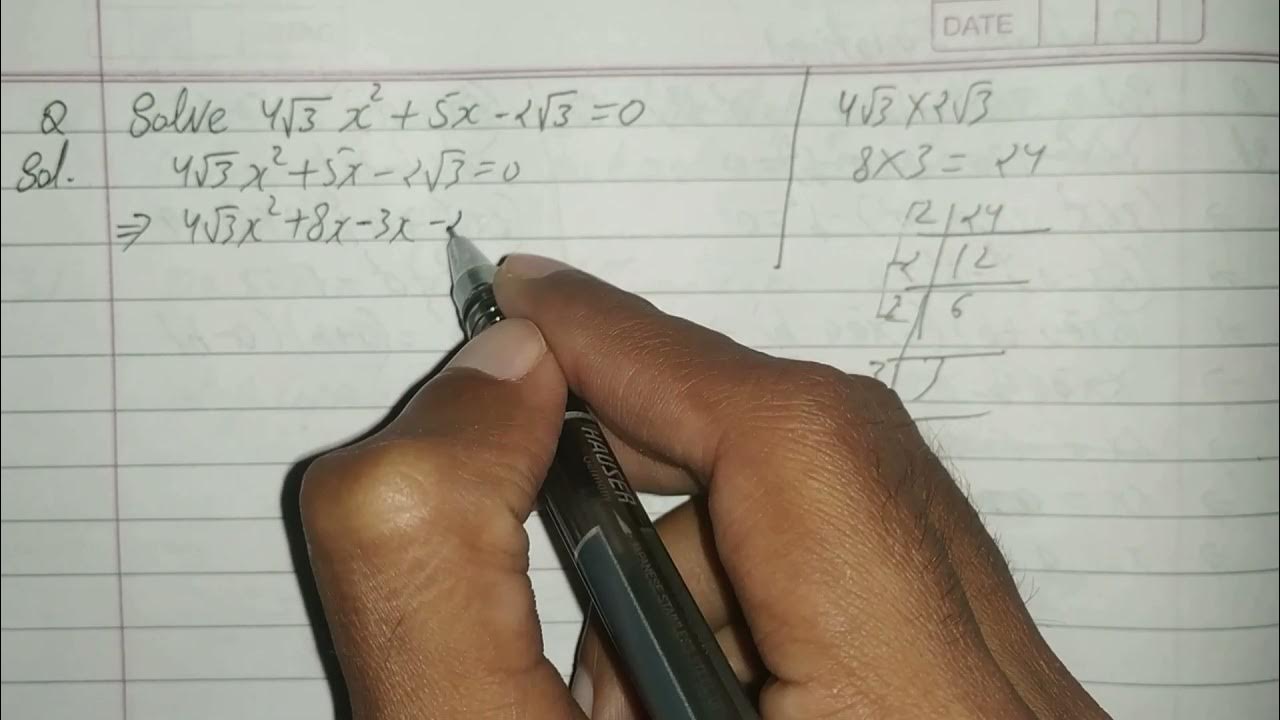 DATE
Q Solve 4√3 x² + 5x - 2√3 = 0
Sol. 4√3 x² + 5x - 2√3 = 0
⇒ 4√3x² + 8x - 3x - 2
4√3 × 2√3
8 × 3 = 24
2 | 24
2 | 12
2 | 6
3
HAUSER
Germany